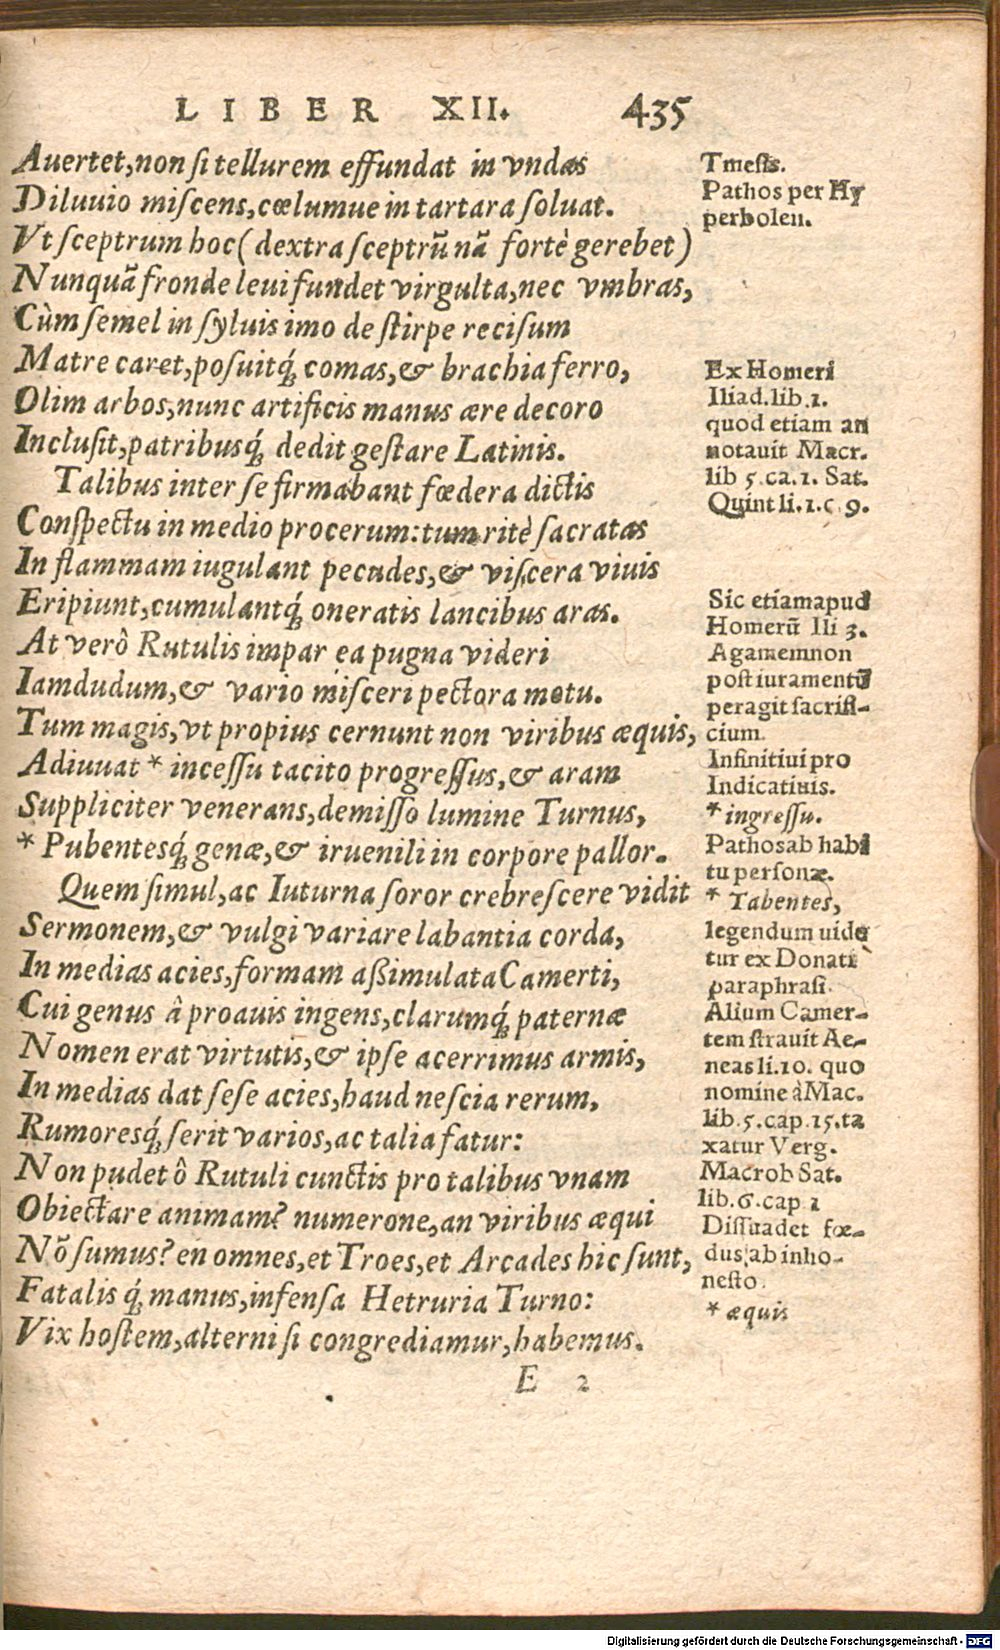 LIBER XII. 435
Auertet, non si tellurem effundat in vndas
Diluuio miscens, cœlumue in tartara soluat.
Vt sceptrum hoc (dextra sceptrũ nã fortè gerebet)
Nunquã fronde leui fundet virgulta, nec vmbras,
Cùm semel in syluis imo de stirpe recisum
Matre caret, posuitq́; comas, & brachia ferro,
Olim arbos, nunc artificis manus ære decoro
Inclusit, patribusq́; dedit gestare Latinis.
Talibus inter se firmabant fœdera dictis
Conspectu in medio procerum: tum ritè sacratas
In flammam iugulant pecudes, & viscera viuis
Eripiunt, cumulantq́; oneratis lancibus aras.
At verò Rutulis impar ea pugna videri
Iamdudum, & vario misceri pectora motu.
Tum magis, vt propius cernunt non viribus æquis,
Adiuuat * incessu tacito progressus, & aram
Suppliciter venerans, demisso lumine Turnus,
* Pubentesq́; genæ, & iruenili in corpore pallor.
Quem simul, ac Iuturna soror crebrescere vidit
Sermonem, & vulgi variare labantia corda,
In medias acies, formam aßimulata Camerti,
Cui genus â proauis ingens, clarumq́; paternæ
Nomen erat virtutis, & ipse acerrimus armis,
In medias dat sese acies, haud nescia rerum,
Rumoresq́; serit varios, ac talia fatur:
Non pudet ô Rutuli cunctis pro talibus vnam
Obiectare animam? numerone, an viribus æqui
Nõ sumus? en omnes, et Troes, et Arcades hic sunt,
Fatalis q́; manus, infensa Hetruria Turno:
Vix hostem, alterni si congrediamur, habemus.
E 2
Tmesis.
Pathos per Hy
perbolen.
Ex Homeri
Iliad. lib. 1.
quod etiam an
notauit Macr.
lib 5. ca. 1. Sat.
Quint li. 1. c. 9.
Sic etiam apud
Homerũ Ili 3.
Agamemnon
post iuramentũ
peragit sacrifi-
cium.
Infinitiui pro
Indicatiuis.
* ingressu.
Pathos ab habi
tu personæ.
* Tabentes,
legendum uide
tur ex Donati
paraphrasi.
Alium Camer-
tem strauit Ae-
neas li. 10. quo
nomine à Mac.
lib. 5. cap. 15. ta
xatur Verg.
Macrob Sat.
lib. 6. cap 1
Dissuadet fœ-
dus, ab inho-
nesto.
* æquis
Digitalisierung gefördert durch die Deutsche Forschungsgemeinschaft - DFG